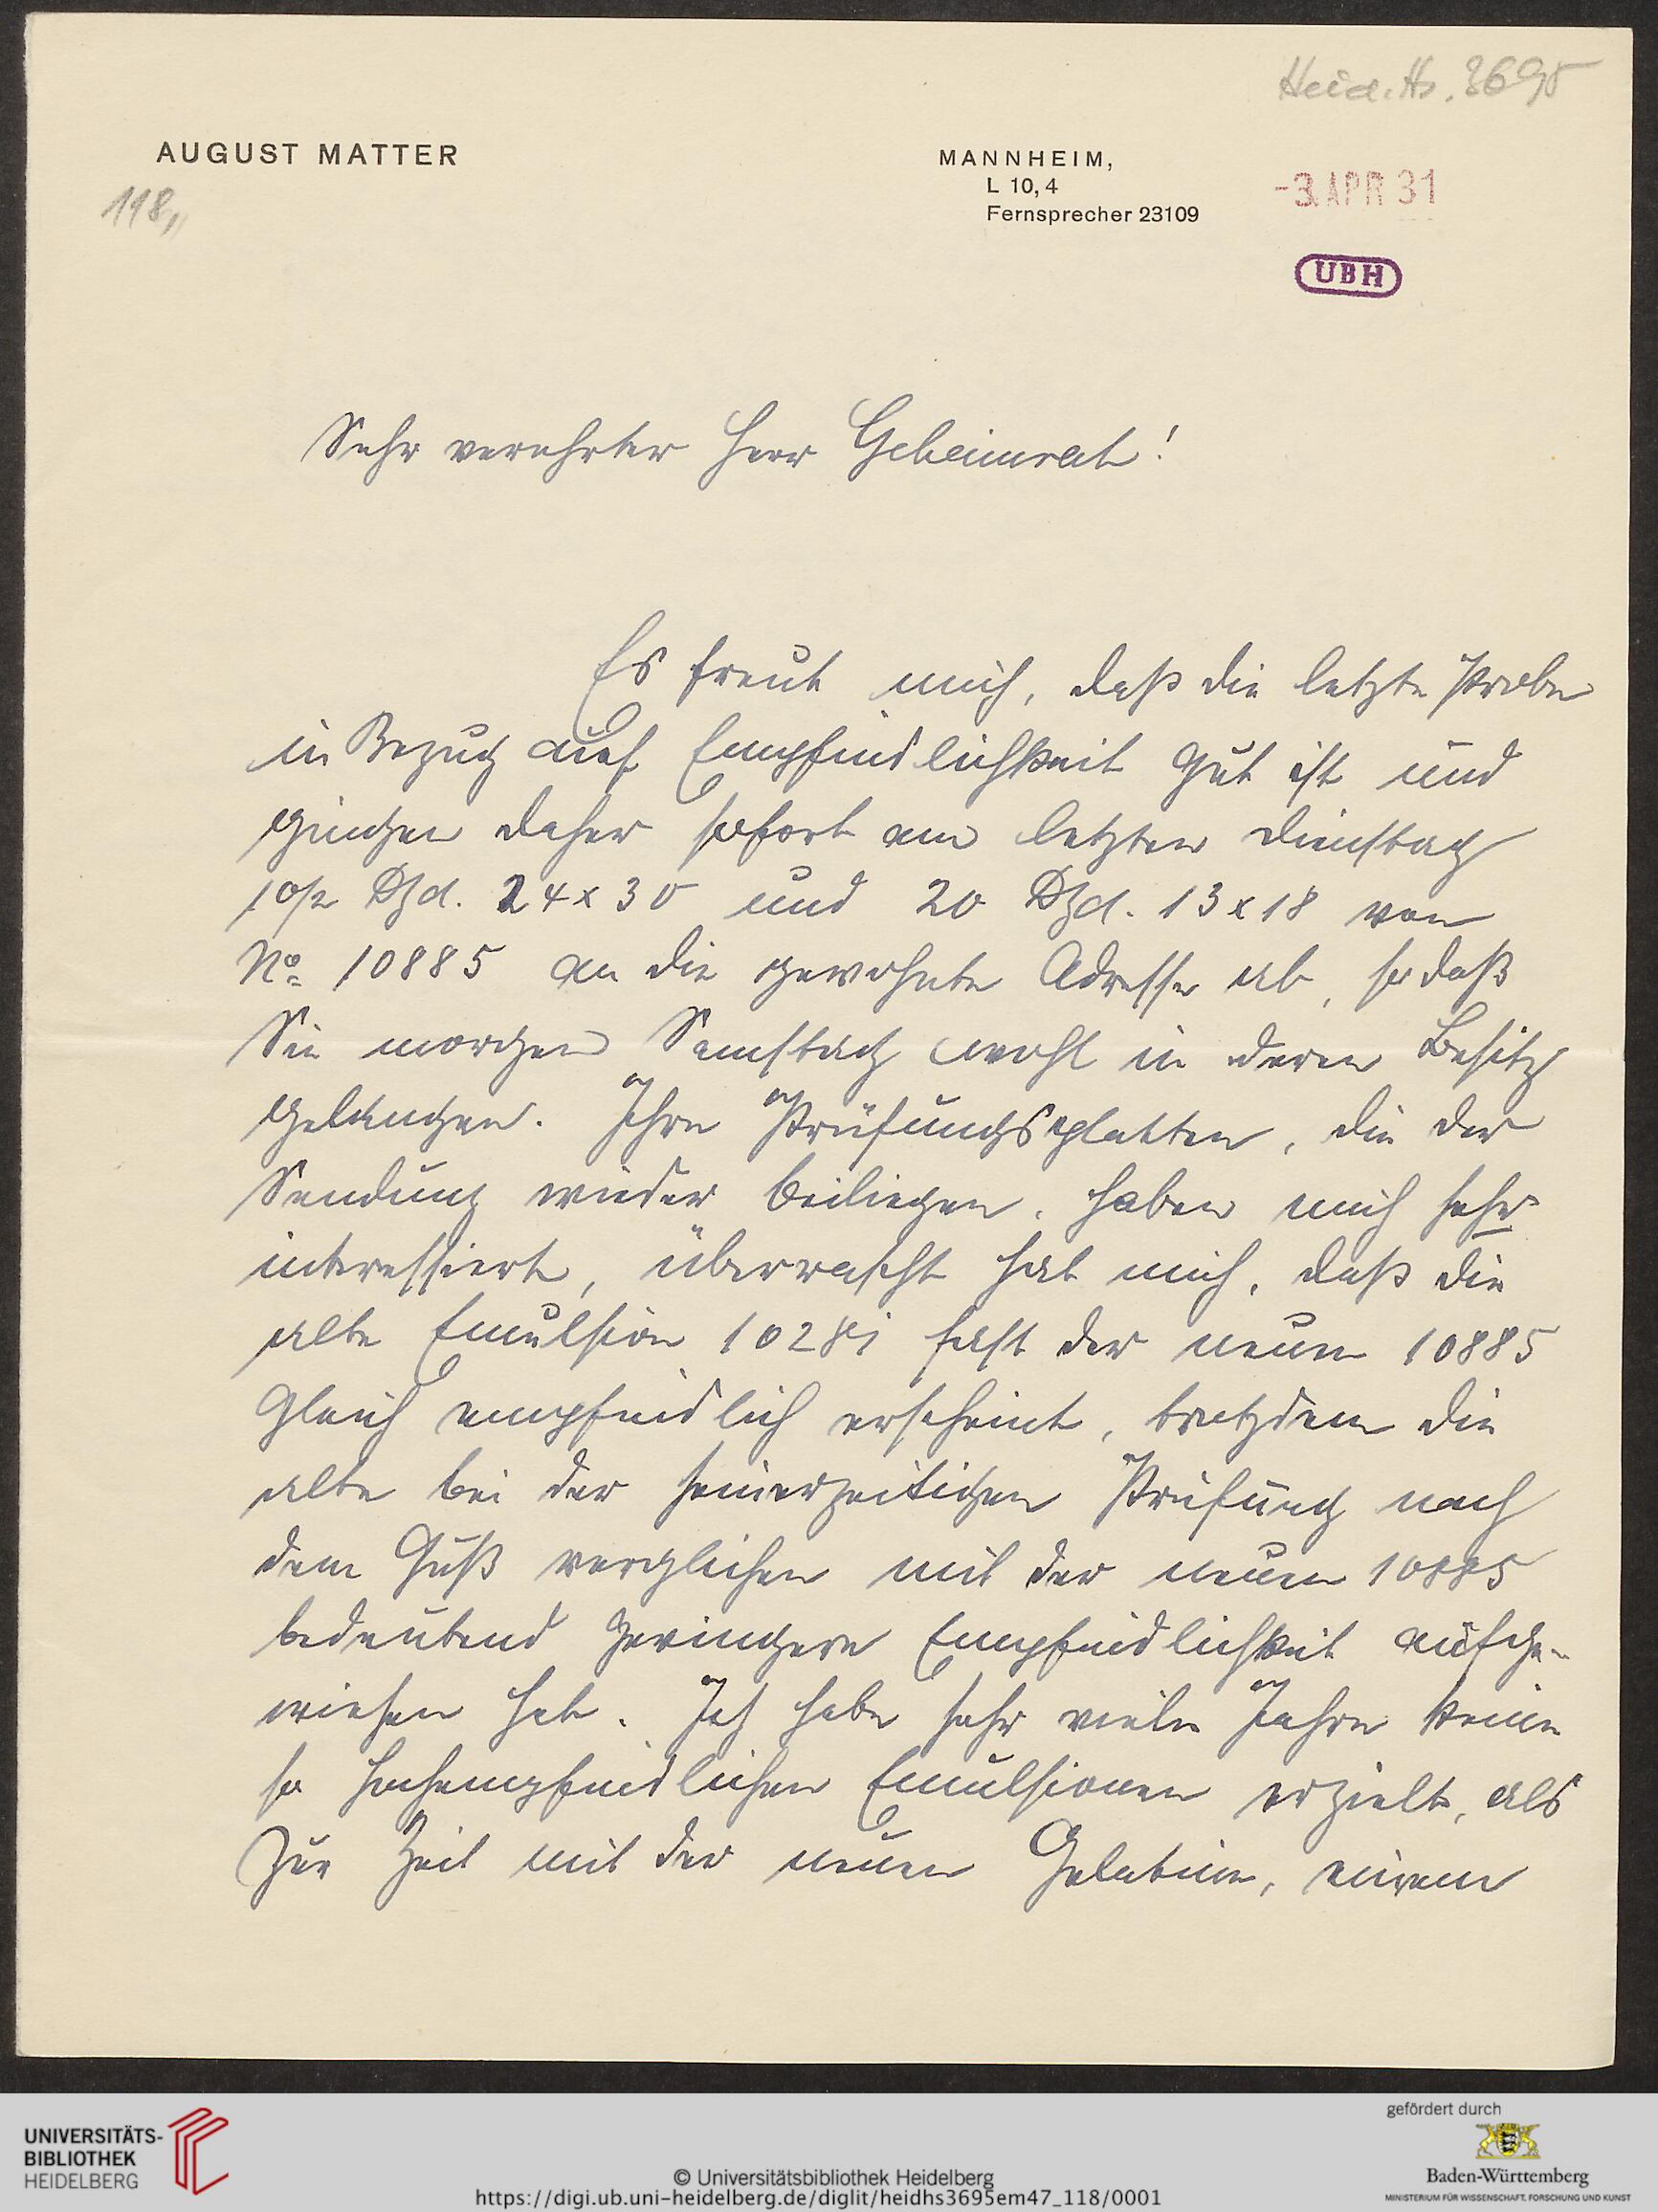 Heid. Hs. 3695
AUGUST MATTER
MANNHEIM,
L 10, 4
Fernsprecher 23109
-3. APR 31
118,,
UBH
Sehr verehrter Herr Geheimrat!
Es freut mich, daß die letzte Probe
in Bezug auf Empfindlichkeit gut ist und
gingen daher sofort am letzten Dienstag
10/2 Dzd. 24x30 und 20 Dzd. 13x18 von
No 10885 an die gewohnte Adresse ab, so daß
Sie morgen Samstag wohl in deren Besitz
gelangen. Ihre Prüfungsplatten, die der
Sendung wieder beiliegen, haben mich sehr
interessiert, überrascht hat mich, daß die
alte Emulsion 10281 fast der neuen 10885
gleich empfindlich erscheint, trotzdem die
alte bei der seinerzeitigen Prüfung nach
dem Guß verglichen mit der neuen 10885
bedeutend geringere Empfindlichkeit aufge-
wiesen hat. Ich habe sehr viele Jahre keine
so hochempfindlichen Emulsionen erzielt, als
zur Zeit mit der neuen Gelatine, einem
UNIVERSITÄTS-
BIBLIOTHEK
HEIDELBERG
© Universitätsbibliothek Heidelberg
https://digi.ub.uni-heidelberg.de/diglit/heidhs3695em47_118/0001
gefördert durch
Baden-Württemberg
MINISTERIUM FÜR WISSENSCHAFT, FORSCHUNG UND KUNST